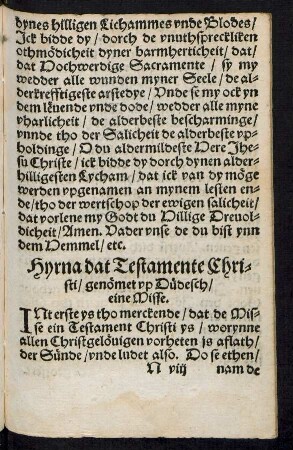 dynes hilligen Lichammes vnde Blodes/
Jck bidde dy/ dorch de vnuthspreckliken
othmödicheit dyner barmherticheit/ dat/
dat Hochwerdige Sacramente/ sy my
wedder alle wunden myner Seele/ de al-
derkrefftigeste arstedye/ Vnde se my ock yn
dem leuende vnde dode/ wedder alle myne
vharlicheit/ de alderbeste bescharminge/
vnnde tho der Salicheit de alderbeste vp-
holdinge/ O du aldermildeste Here Jhe-
su Christe/ ick bidde dy dorch dynen alder-
hilligesten Lycham/ dat ick van dy möge
werden vpgenamen an mynem lesten en-
de/ tho der wertschop der ewigen salicheit/
dat vorlene my Godt du Hillige Dreuol-
dicheit/ Amen. Vader vnse de du bist ynn
dem Hemmel/ etc.
Hyrna dat Testamente Chri-
sti/ genömet vp Düdesch/
eine Misse.
INt erste ys tho merckende/ dat de Mis-
se ein Testament Christi ys/ worynne
allen Christgelöuigen vorheten is aflath/
der Sünde/ vnde ludet also. Do se ethen/
N viij nam de